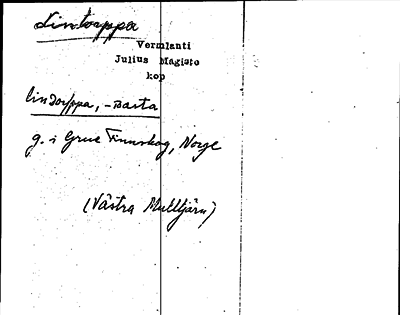 Lintorppa
Vermlanti
Julius Mägiste
kop
lindorppa, -sasta
g. i Grue Finnskog, Norge
(Västra Mulltjärn)